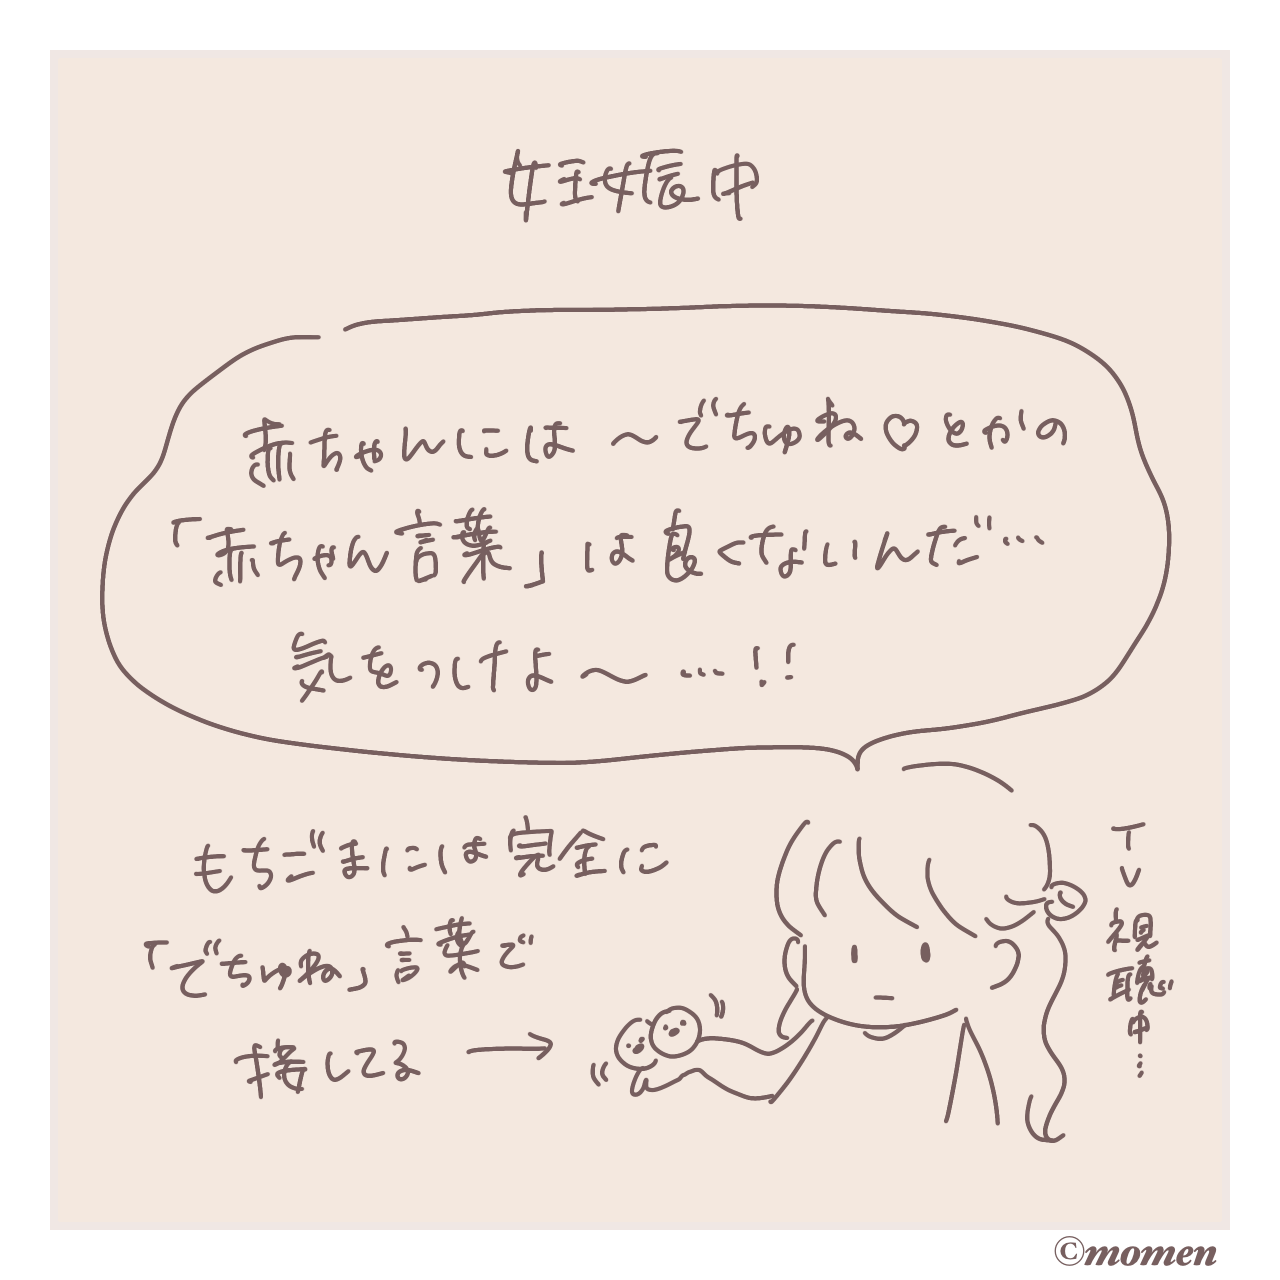 妊娠中
赤ちゃんには〜でちゅね♡とかの
「赤ちゃん言葉」は良くないんだ…
気をつけよ〜…!!
もちごまには完全に
「でちゅね」言葉で
接してる→
TV視聴中…
©momen